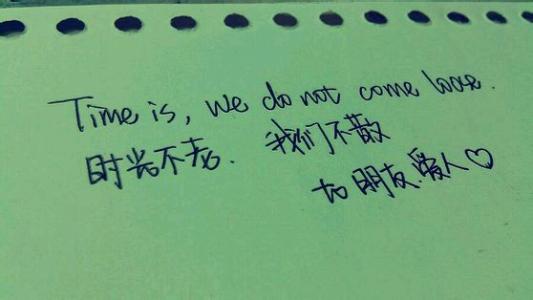 Time is, we do not come loose.
时光不老. 我们不散
to 朋友.爱人♡